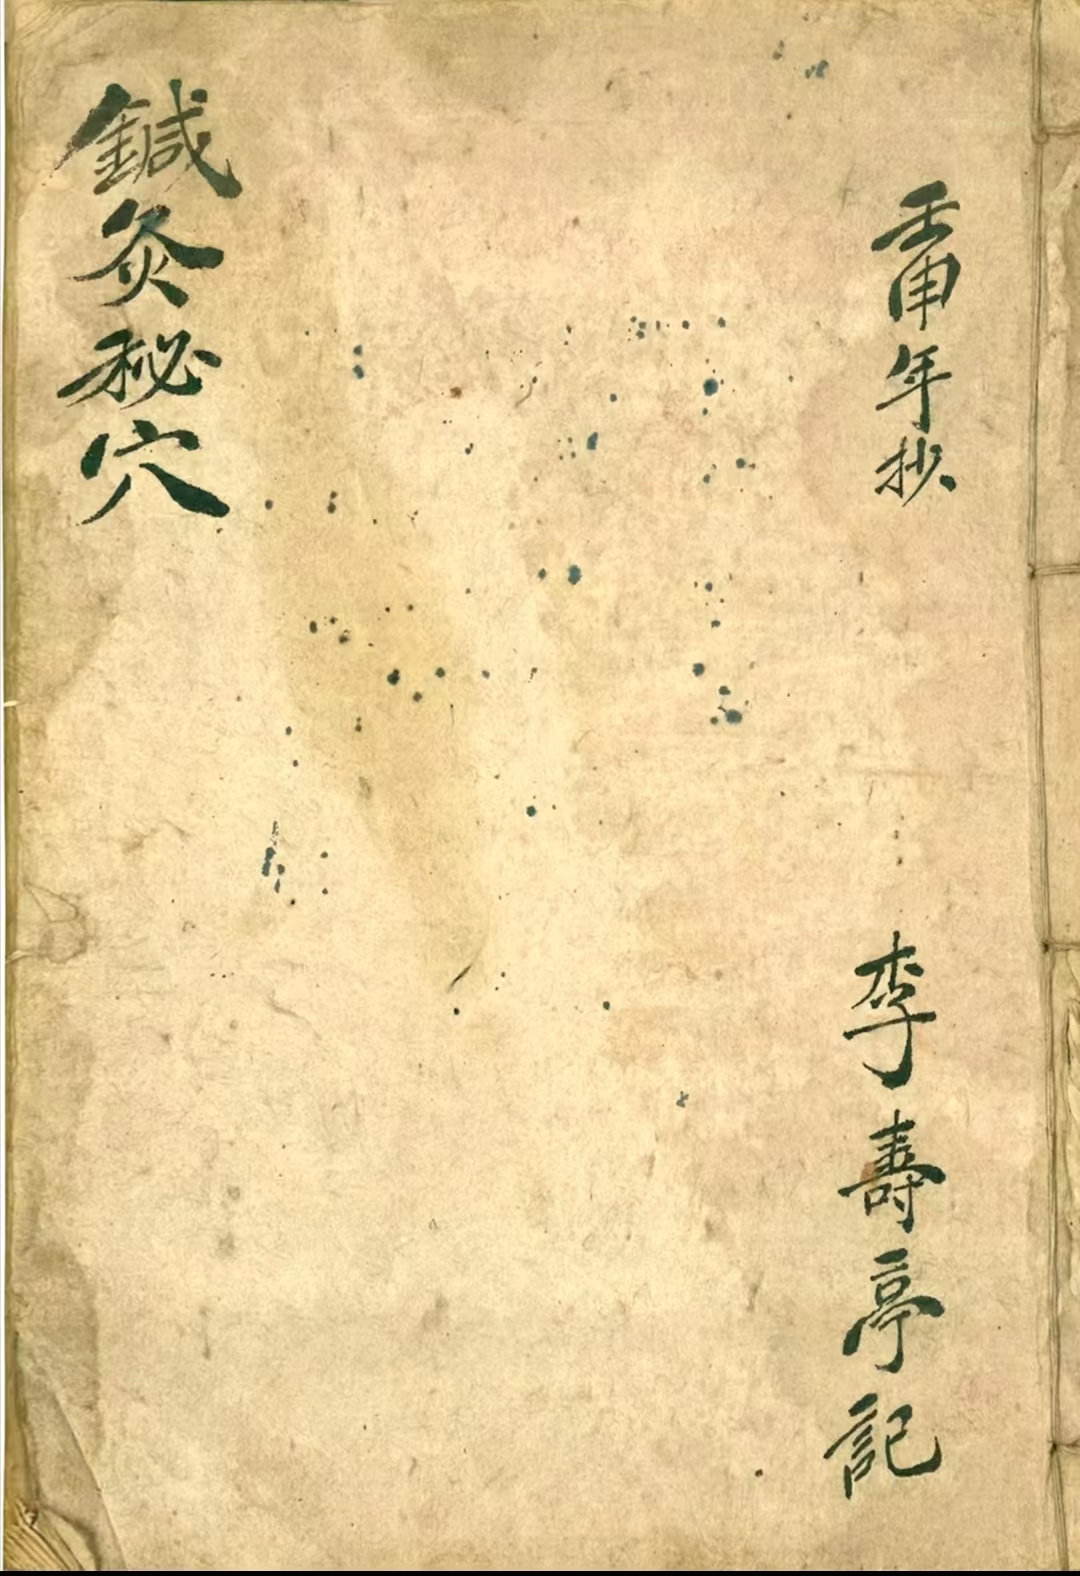 壬申年抄
李壽亭記
鍼灸秘穴